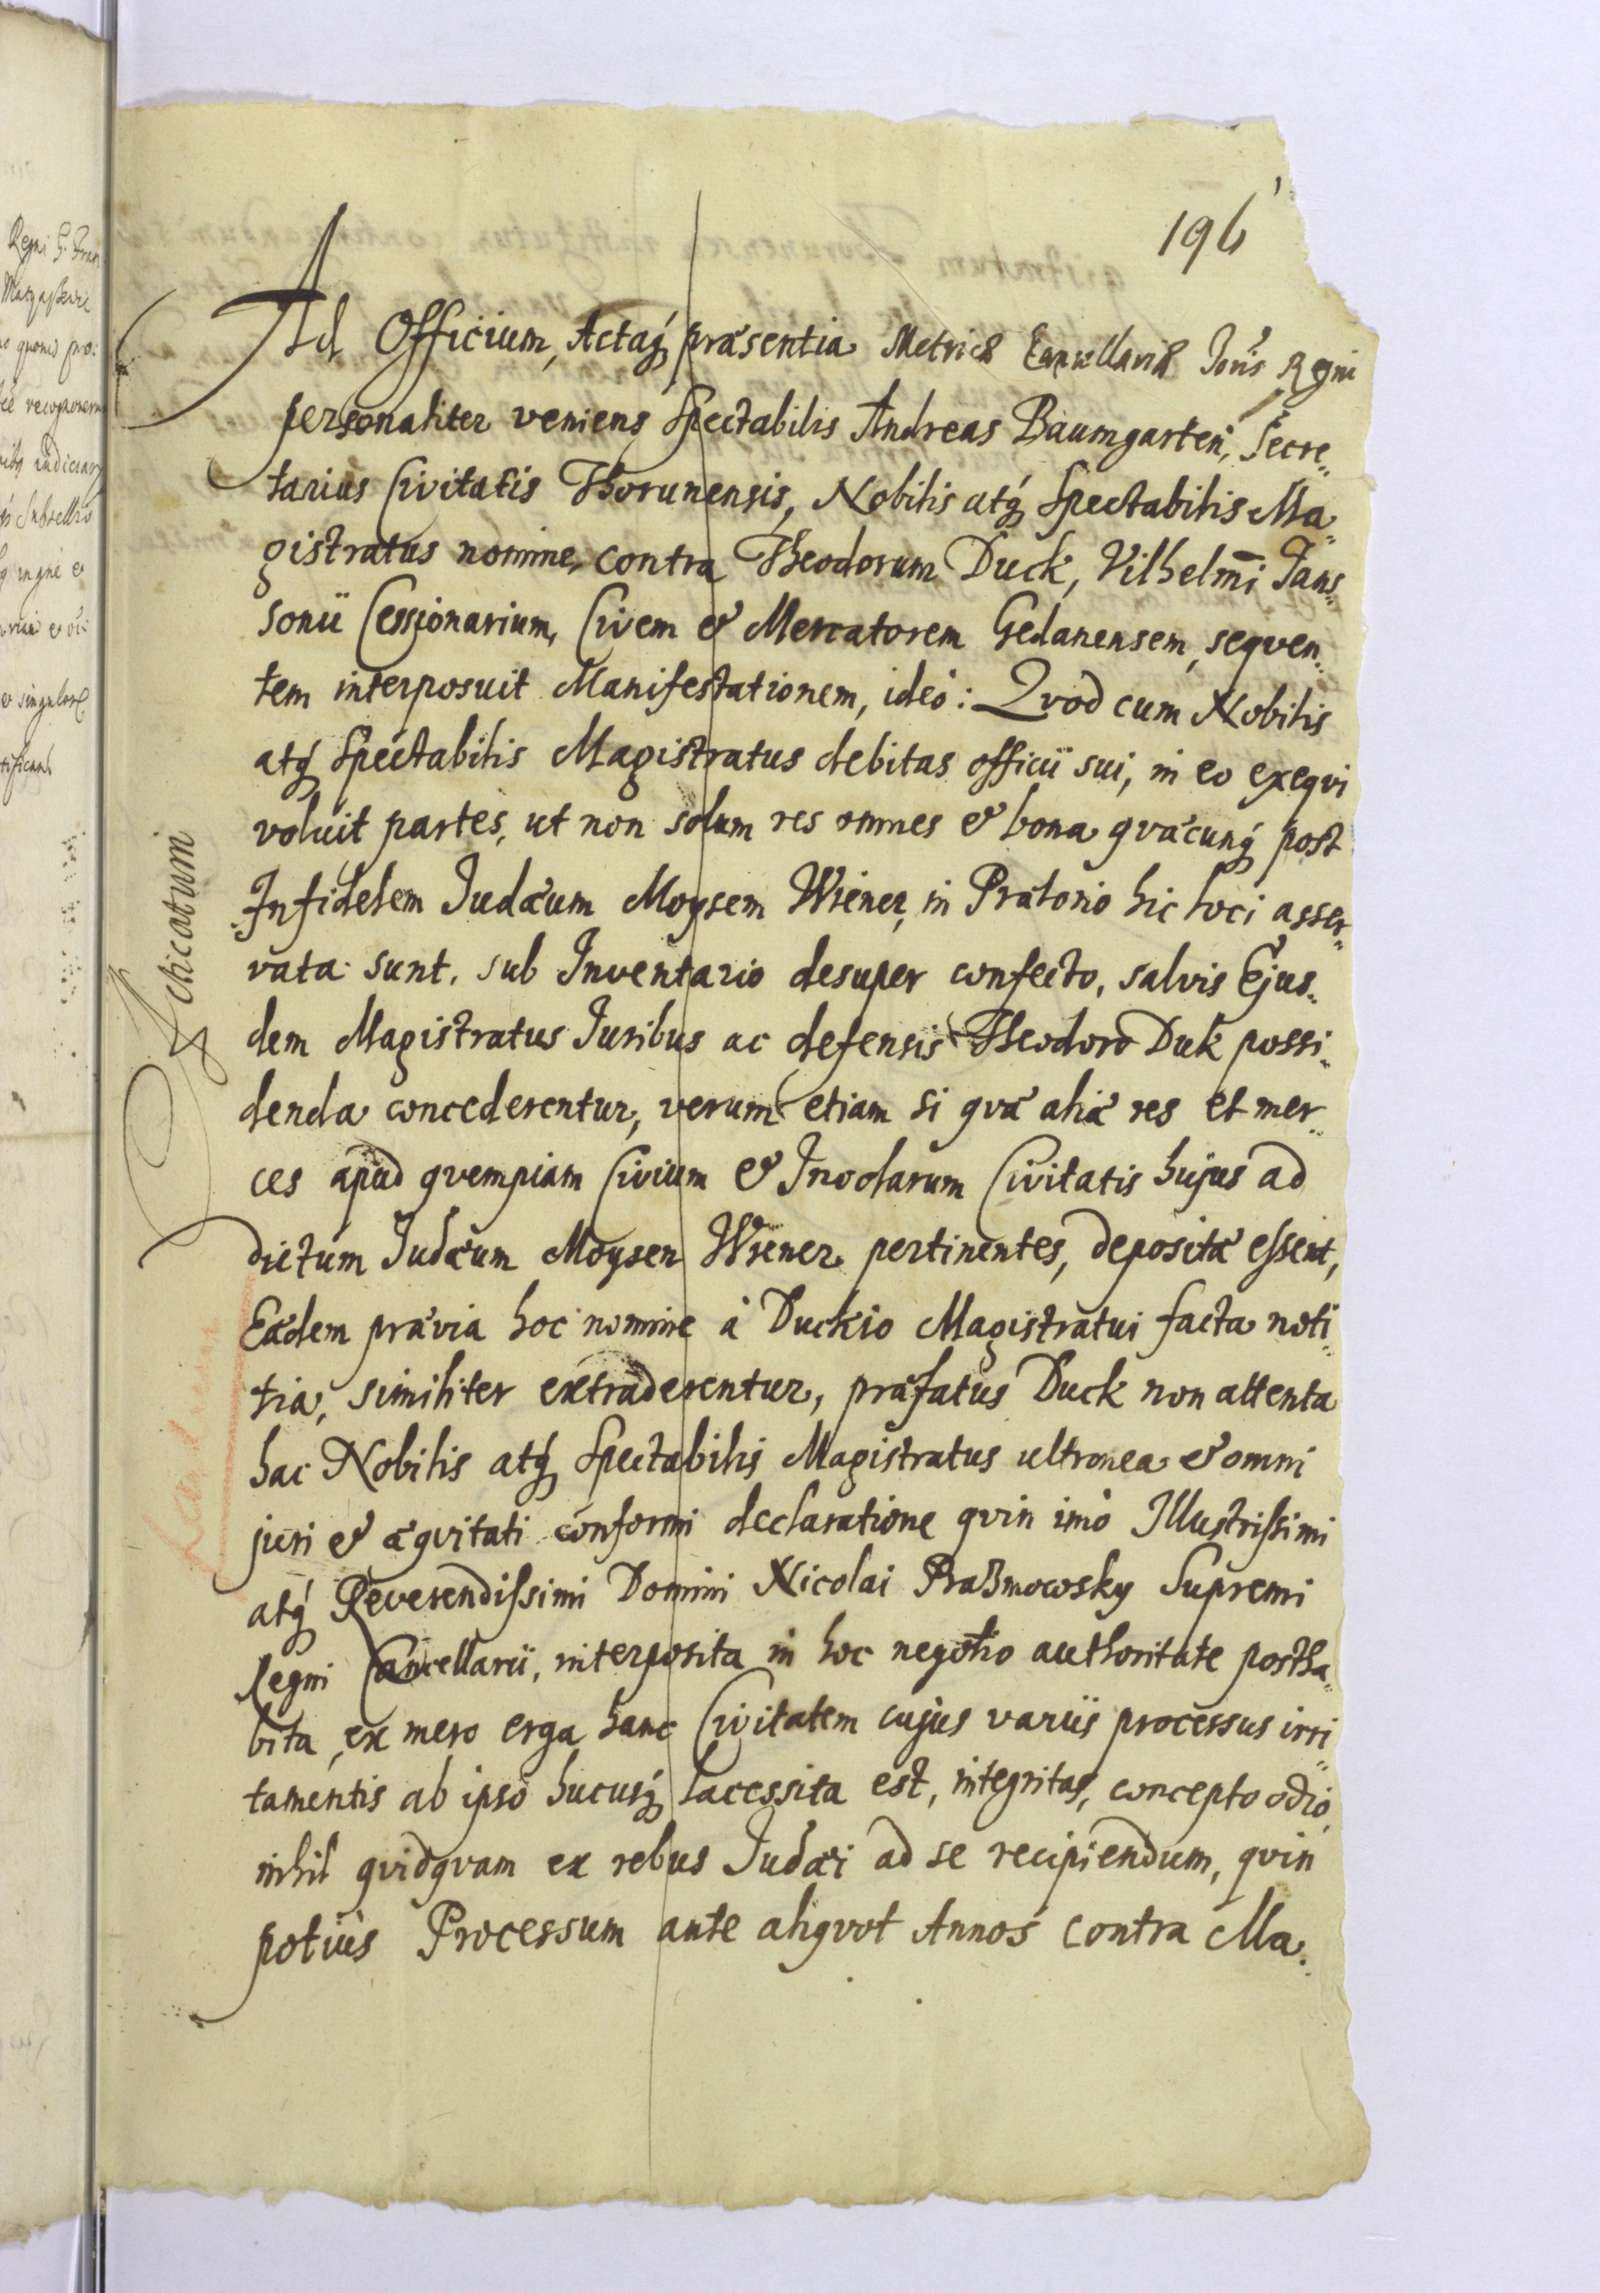 196
Ad Officium, Actaq́ præsentia Metricæ Cancellariæ Regni
personaliter veniens Spectabilis Andreas Baumgarten, Secre„
tarius Civitatis Thorunensis, Nobilis atq́ Spectabilis Ma„
gistratus nomine, contra Theodorum Duck, Vilhelmi Jans„
sonii Cessionarium, Civem & Mercatorem Gedanensem, seqven„
tem interposuit Manifestationem, ideò: Qvod cum Nobilis
atq́ Spectabilis Magistratus debitas officii sui, in eo exeqvi
voluit partes, ut non solum res omnes & bona qvæcunq́ post
Infidelem Judæum Moysem Wiener, in Prætorio hic loci asser„
vata sunt, sub Inventario desuper confecto, salvis Ejus„
dem Magistratus Juribus ac defensis Theodoro Duk possi„
denda concederentur, verum etiam si qvæ aliæ res et mer„
ces apud qvempiam Civium & Incolarum Civitatis hujus ad
dictum Judæum Moysen Wiener pertinentes, depositæ essent,
Eædem prævia hoc nomine à Duckio Magistratui facta noti„
tia, similiter extraderentur, præfatus Duck non attenta
hac Nobilis atq́ Spectabilis Magistratus ultronea & omni
juri & æqvitati conformi declaratione qvin imò Illustrissimi
atq́ Reverendissimi Domini Nicolai Praßmowsky Supremi
Regni Cancellarii, interposita in hoc negotio authoritate postha„
bita, ex mero erga hanc Civitatem cujus variis processus irri„
tamentis ab ipso hucusq́ lacessita est, integritas, concepto odio,
nihil qvidqvam ex rebus Judæi ad se recipiendum, qvin
potiùs Processum ante aliqvot Annos contra Ma„
Acticatum